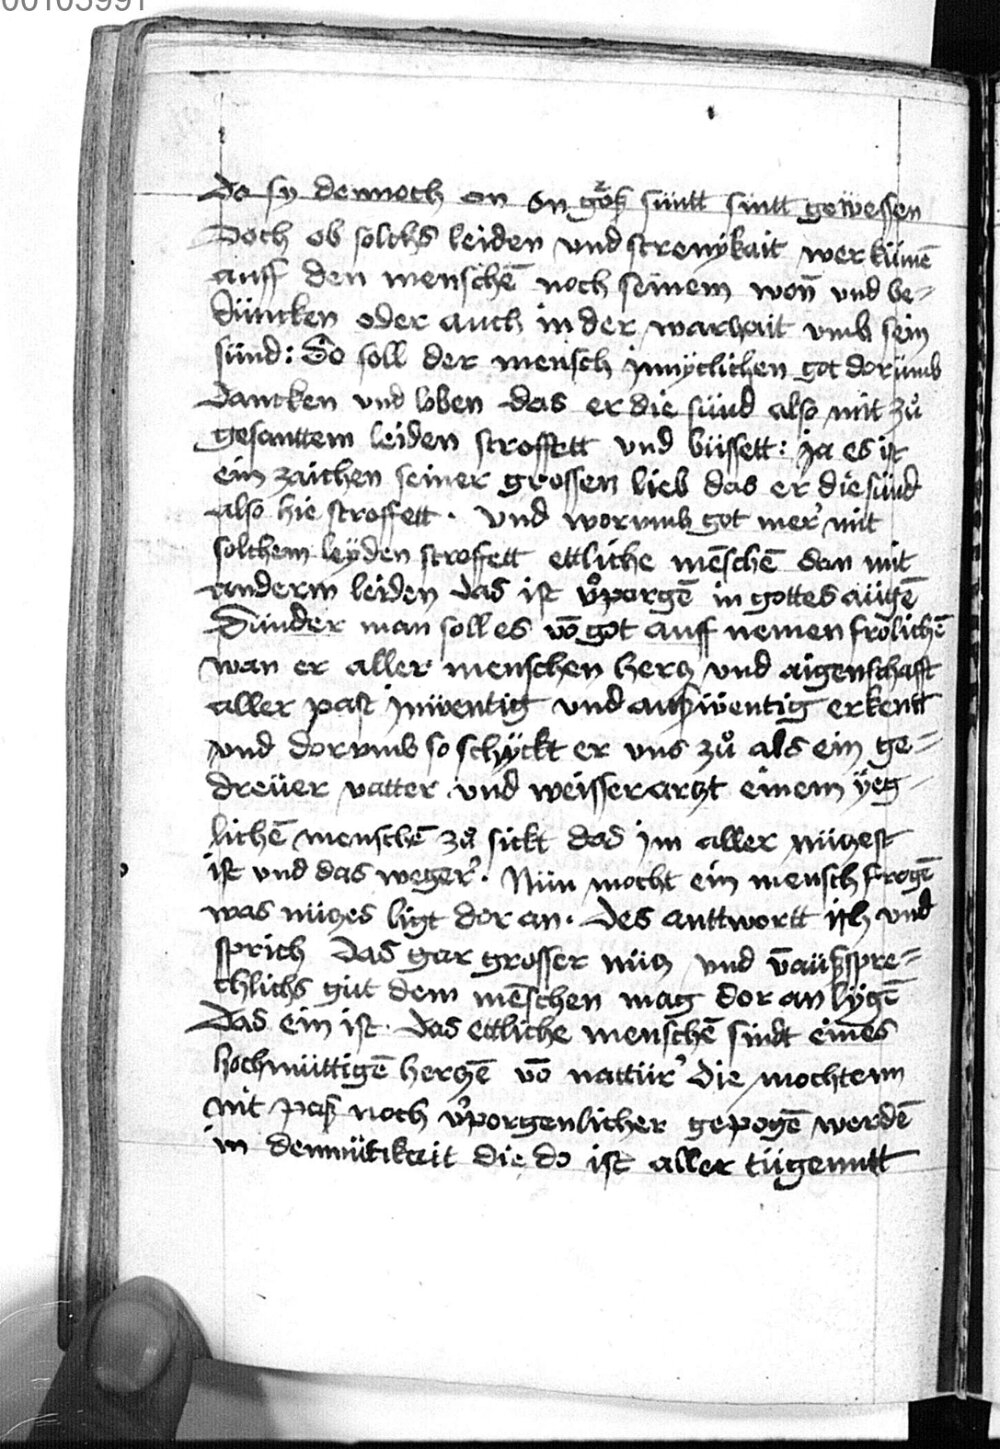 00103991
Do sy dennoch on on groß süntt sintt gewessen
Doch ob solchs leiden vnd strenykait wer kumē
auff den menschē noch seinem won̄ vnd be-
düncken oder auch in der warhait vmb sein
sünd: So soll der mensch jnnyclichen got dorümb
dancken vnd loben das er die sünd also mit zů
gesanttem leiden stroffett vnd büssett: ja es ist
ein zaichen seiner grossen lieb das er die sünd
also hie stroffett. Vnd worvmb got mer mit
solchem leyden stroffett ettliche mēschē dan mit
anderm leiden das ist v̓porgē in gottes aügē
Sunder man soll es vō got auff nemen frölichē
wan er aller menschen hercz vnd aigenschafft
aller past jnwentig vnd außwentig erkentt
vnd dorvmb so schyckt er vns zů als ein ge-
dreüer vatter vnd weisser arczt einem yeg-
lichē menschē zů sickt das jm aller nüczest
ist vnd das weger. Nün mocht ein mensch frogē
was nüczes ligt dor an. Des anttwortt ich vnd
sprich Das gar grosser nücz vnd v̄außspre-
chlichs gut dem mēschen mag dor an lygē
Das ein ist. das ettliche menschē sindt eines
hochmüttigē herczē vō nattür die mochtenn
nit paß noch v̓porgenlicher gepogē werdē
in demmütikeit die do ist aller tügenntt